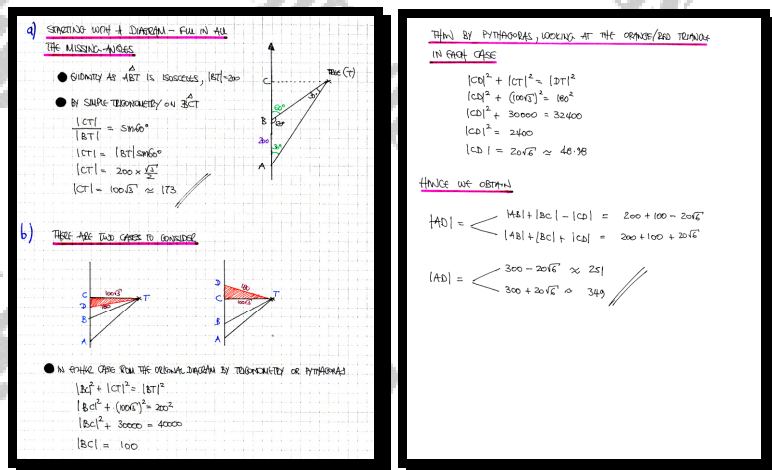 a) STARTING WITH A DIAGRAM - FILL IN ALL
THE MISSING ANGLES
● EVIDENTLY AS ABT IS ISOSCELES, |BT|=200
● BY SIMPLE TRIGONOMETRY ON BCT
|CT| / |BT| = sin60°
|CT| = |BT| sin60°
|CT| = 200 × √3/2
|CT| = 100√3 ≈ 173
TREE (T)
C
30°
60°
B
120°
200
30°
A
b) THERE ARE TWO CASES TO CONSIDER
C 100√3 T
D 180
B
A
D 180
C 100√3 T
B
A
● IN EITHER CASE FROM THE ORIGINAL DIAGRAM BY TRIGONOMETRY OR PYTHAGORAS
|BC|² + |CT|² = |BT|²
|BC|² + (100√3)² = 200²
|BC|² + 30000 = 40000
|BC| = 100
THEN BY PYTHAGORAS, LOOKING AT THE ORANGE/RED TRIANGLE
IN EACH CASE
|CD|² + |CT|² = |DT|²
|CD|² + (100√3)² = 180²
|CD|² + 30000 = 32400
|CD|² = 2400
|CD| = 20√6 ≈ 48.98
HENCE WE OBTAIN
|AD| =
|AB| + |BC| - |CD| = 200 + 100 - 20√6
|AB| + |BC| + |CD| = 200 + 100 + 20√6
|AD| =
300 - 20√6 ≈ 251
300 + 20√6 ≈ 349